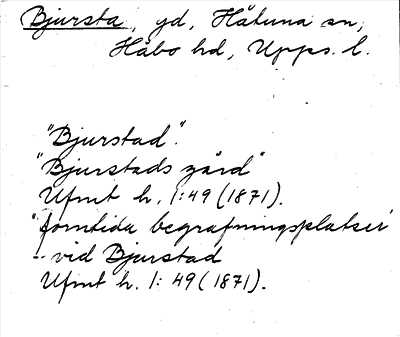 Bjursta, gd, Håtuna sn,
Håbo hd, Upps. l.
"Bjurstad".
"Bjurstads gård"
Ufmt h. 1:49 (1871).
"forntida begrafningsplatser
-- vid Bjurstad
Ufmt h. 1:49 (1871).